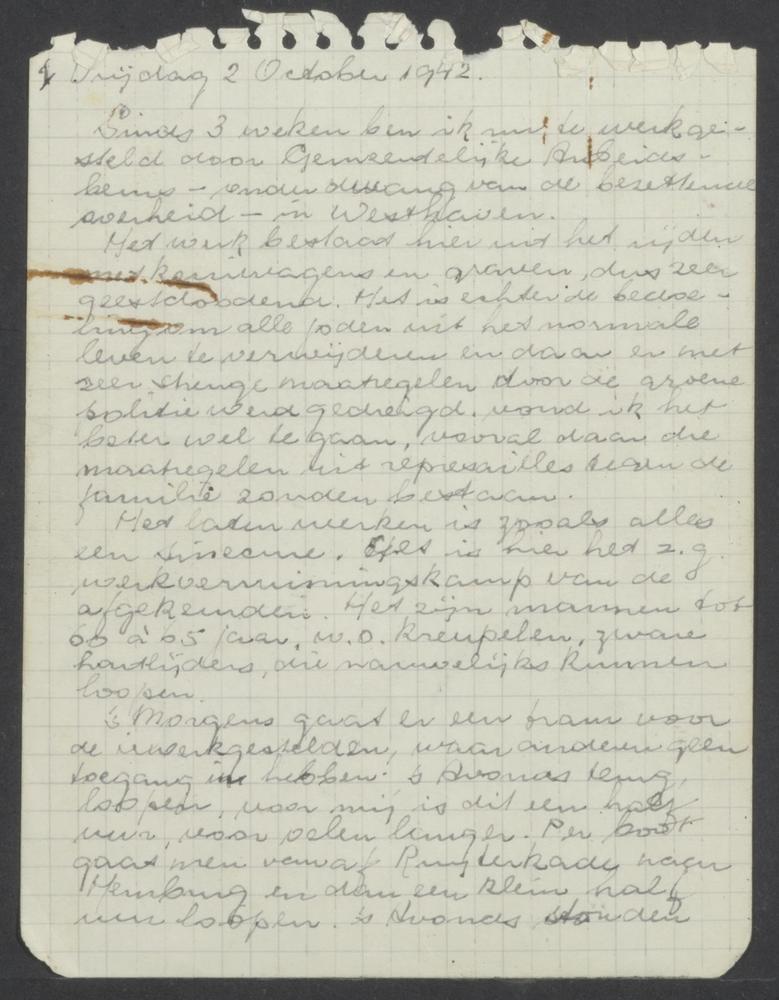 1 Vrijdag 2 October 1942.
Sinds 3 weken ben ik nu te werk ge-
steld door Gemeentelijke Arbeids-
beurs – onder dwang van de bezettende
overheid – in Westhaven.
Het werk bestaat hier uit het rijden
met kruiwagens en graven, dus zeer
geestdoodend. Het is echter de bedoe-
ling om alle joden uit het normale
leven te verwijderen en daar er met
zeer strenge maatregelen door de groene
politie werd gedreigd, vond ik het
beter wel te gaan, vooral daar die
maatregelen uit represailles tegen de
familie zouden bestaan.
Het laten werken is zooals alles
een sinecure. Het is hier het z.g.
werkverruimingskamp van de
afgekeurden. Het zijn mannen tot
60 à 65 jaar, w.o. kreupelen, zware
hartlijders, die nauwelijks kunnen
loopen.
's Morgens gaat er een tram voor
de tewerkgestelden, waar anderen geen
toegang in hebben. 's Avonds terug
loopen, voor mij is dit een half
uur, voor velen langer. Per boot
gaat men vanaf Ruyterkade naar
Hembrug en dan een klein half
uur loopen. 's Avonds stonden